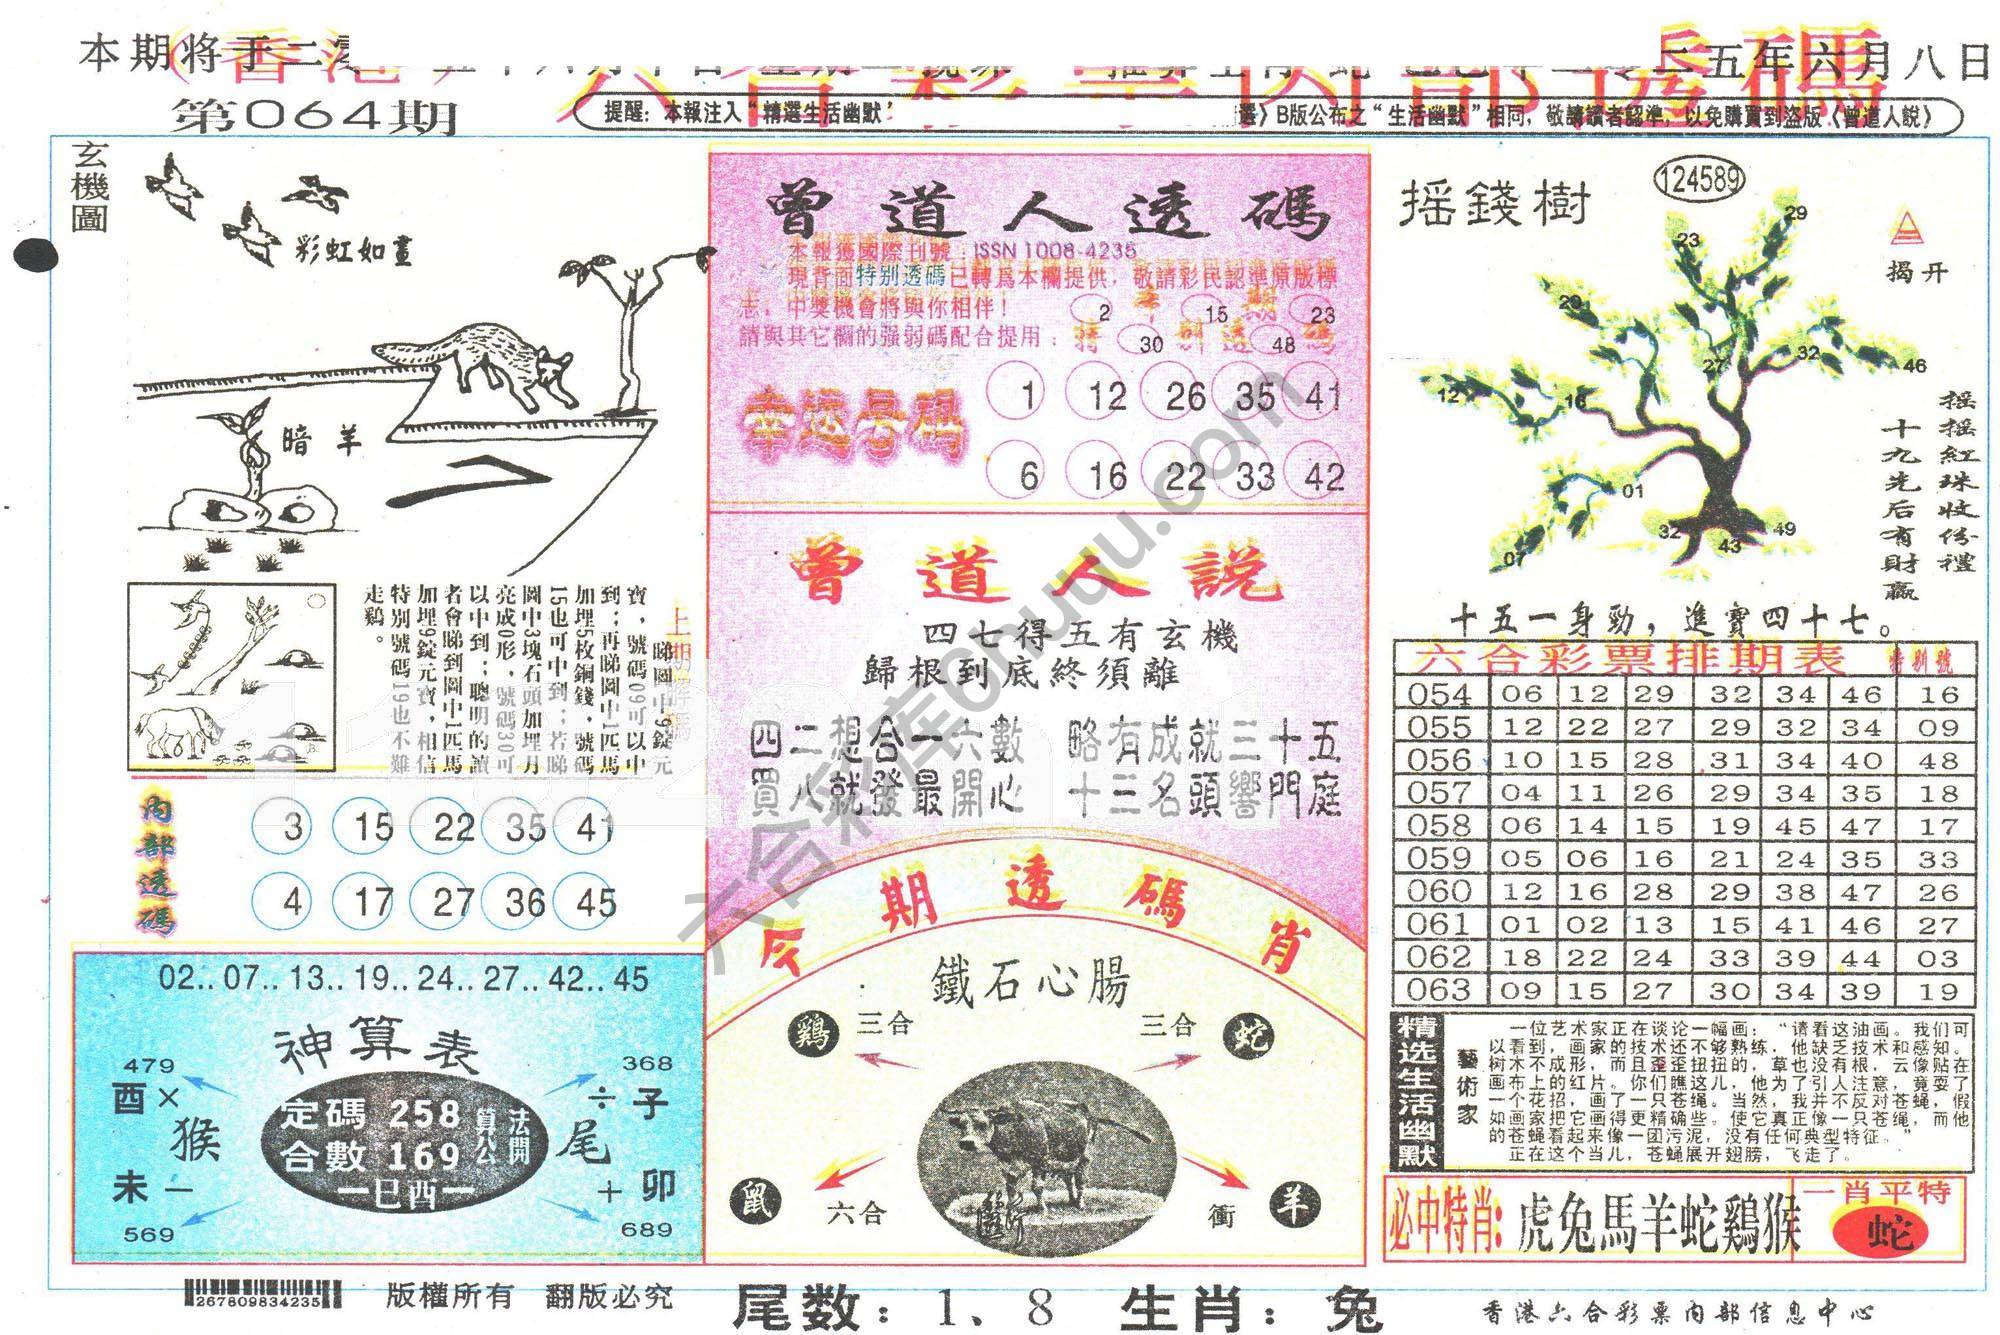 第064期
提醒：本報注入“精選生活幽默’
選〉B版公布之“生活幽默”相同，敬請讀者認準，以免購買到盜版《曾道人說》
玄機圖
彩虹如畫
暗羊
上期解碼
睇圖中9錠元
寶，號碼09可以中
到；再睇圖中1匹馬
加埋5枚銅錢，號碼
15也可中到；若睇
圖中3塊石頭加埋月
亮成0形，號碼30可
以中到；聰明的讀
者會睇到圖中1匹馬
加埋9錠元寶，相信
特別號碼19也不難
走鷄。
內部透碼
3 15 22 35 41
4 17 27 36 45
02.. 07.. 13.. 19.. 24.. 27.. 42.. 45
神算表
479
368
酉 ×
÷ 子
猴
定碼 258
合數 169
一巳酉一
算公
法開
尾
未 —
+ 卯
569
689
267809834235
版權所有 翻版必究
曾道人透碼
本報獲國際刊號：ISSN 1008-4235
現背面特別透碼已轉爲本欄提供，敬請彩民認準原版標
志，中獎機會將與你相伴！
請與其它欄的强弱碼配合提用：
本期
特別透碼
2 15 23
30 48
幸运号码
1 12 26 35 41
6 16 22 33 42
曾道人説
四七得五有玄機
歸根到底終須離
四二想合一六數 略有成就三十五
買八就發最開心 十三名頭響門庭
今期透碼肖
鐵石心腸
鷄 三合
三合 蛇
鼠 六合
衝 羊
尾数：1、8 生肖：兔
摇錢樹
124589
揭开
29
23
29
27
32
46
12
16
01
32
49
43
07
摇摇紅珠收份禮
十九先后有財贏
十五一身勁，進寶四十七。
六合彩票排期表 特别號
054 06 12 29 32 34 46 16
055 12 22 27 29 32 34 09
056 10 15 28 31 34 40 48
057 04 11 26 29 34 35 18
058 06 14 15 19 45 47 17
059 05 06 16 21 24 35 33
060 12 16 28 29 38 47 26
061 01 02 13 15 41 46 27
062 18 22 24 33 39 44 03
063 09 15 27 30 34 39 19
精选生活幽默
藝術家
一位艺术家正在谈论一幅画：“请看这油画。我们可
以看到，画家的技术还不够熟练，他缺乏技术和感知。
树木不成形，而且歪歪扭扭的，草也没有根，云像贴在
画布上的红片。你们瞧这儿，他为了引人注意，竟耍了
一个花招，画了一只苍绳。当然，我并不反对苍蝇，假
如画家把它画得更精确些。使它真正像一只苍绳，而他
的苍蝇看起来像一团污泥，没有任何典型特征。”
正在这个当儿，苍蝇展开翅膀，飞走了。
必中特肖：虎兔馬羊蛇鷄猴
一肖平特
蛇
香港六合彩票内部信息中心
六合彩库6huuu.com